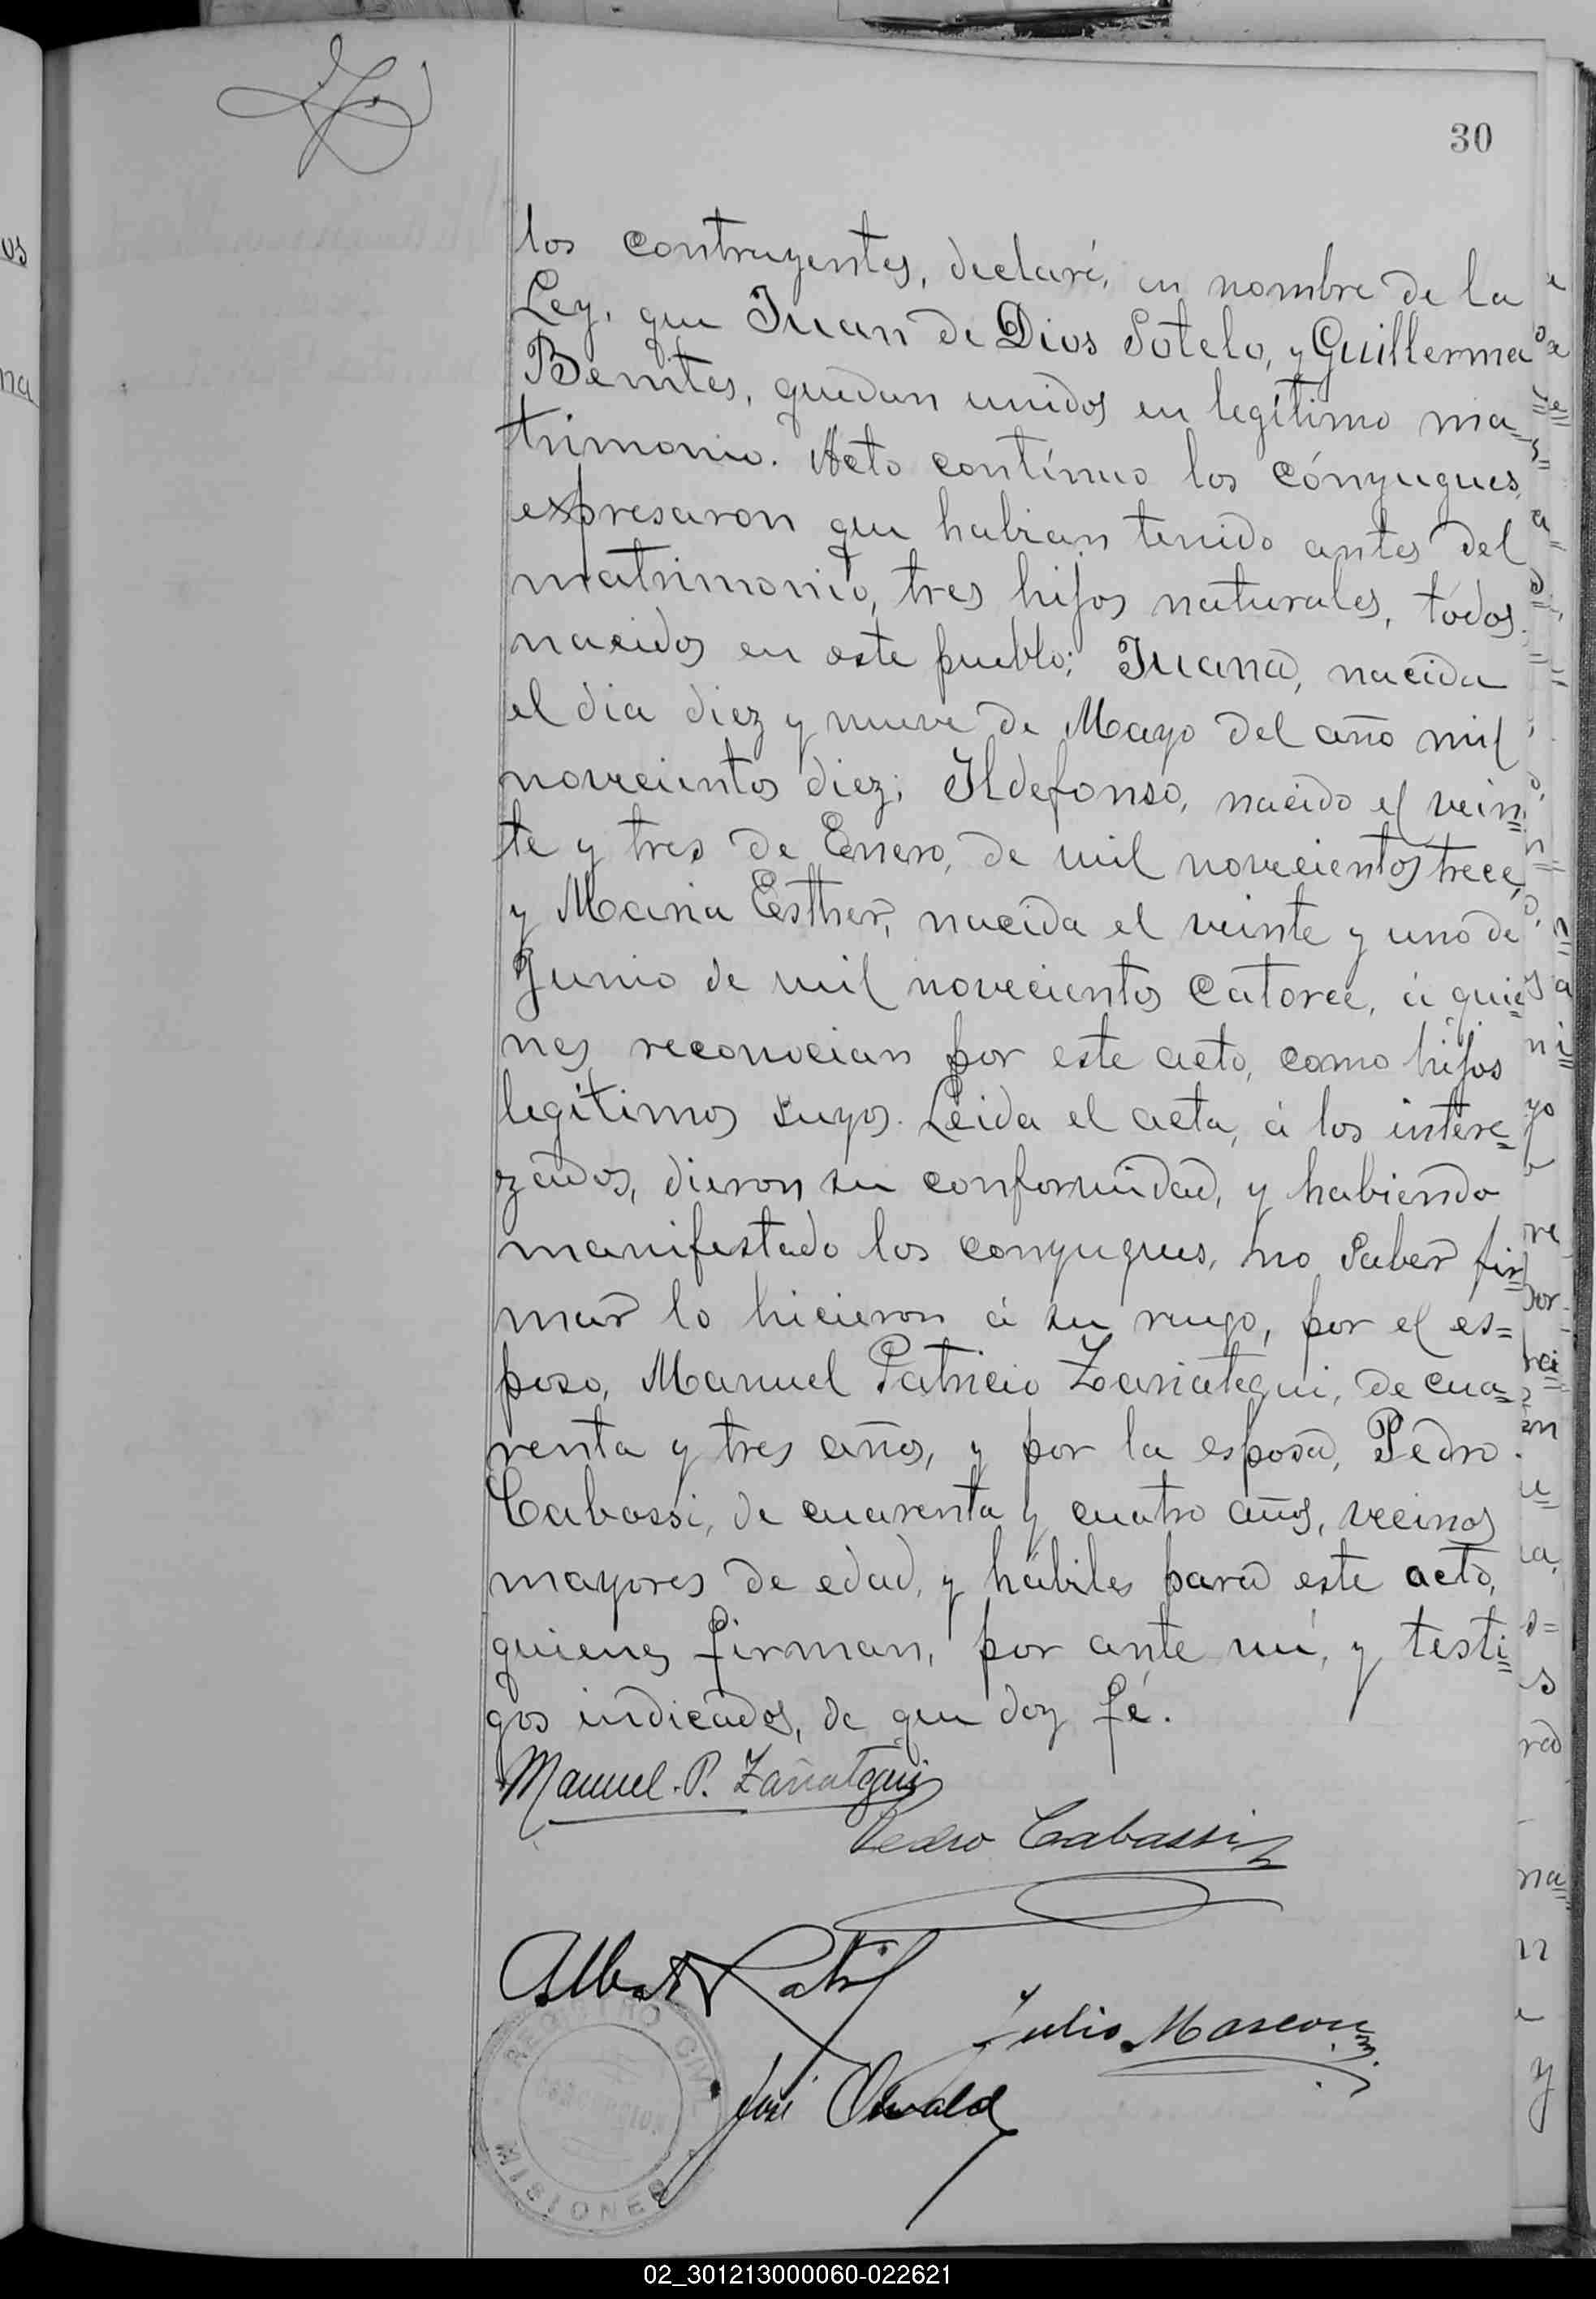 30
los contrayentes, declaré, en nombre de la
Ley, que Juan de Dios Sotelo, y Guillerma
Benites, quedan unidos en legítimo ma=
trimonio. Acto contínuo los cónyugues,
expresaron que habian tenido antes del
matrimonio, tres hijos naturales, todos
nacidos en este pueblo; Juana, nacida
el dia diez y nueve de Mayo del año mil
novecientos diez; Ildefonso, nacido el vein=
te y tres de Enero, de mil novecientos trece,
y Maria Esther, nacida el veinte y uno de
Junio de mil novecientos catorce, á quie=
nes reconocian por este acto, como hijos
legítimos suyos. Leida el acta, á los intere=
zados, dieron su conformidad, y habiendo
manifestado los conyugues, no saber fir=
mar lo hicieron á su ruego, por el es=
poso, Manuel Patricio Zañategui, de cua=
renta y tres años, y por la esposa, Pedro
Cabassi, de cuarenta y cuatro años, vecinos
mayores de edad, y hábiles para este acto,
quienes firman, por ante mí, y testi=
gos indicados, de que doy fé.
Manuel. P. Zañategui
Pedro Cabassi
Julio
José Oswald
REGISTRO CIVIL
CONCEPCION
MISIONES
02_301213000060-022621